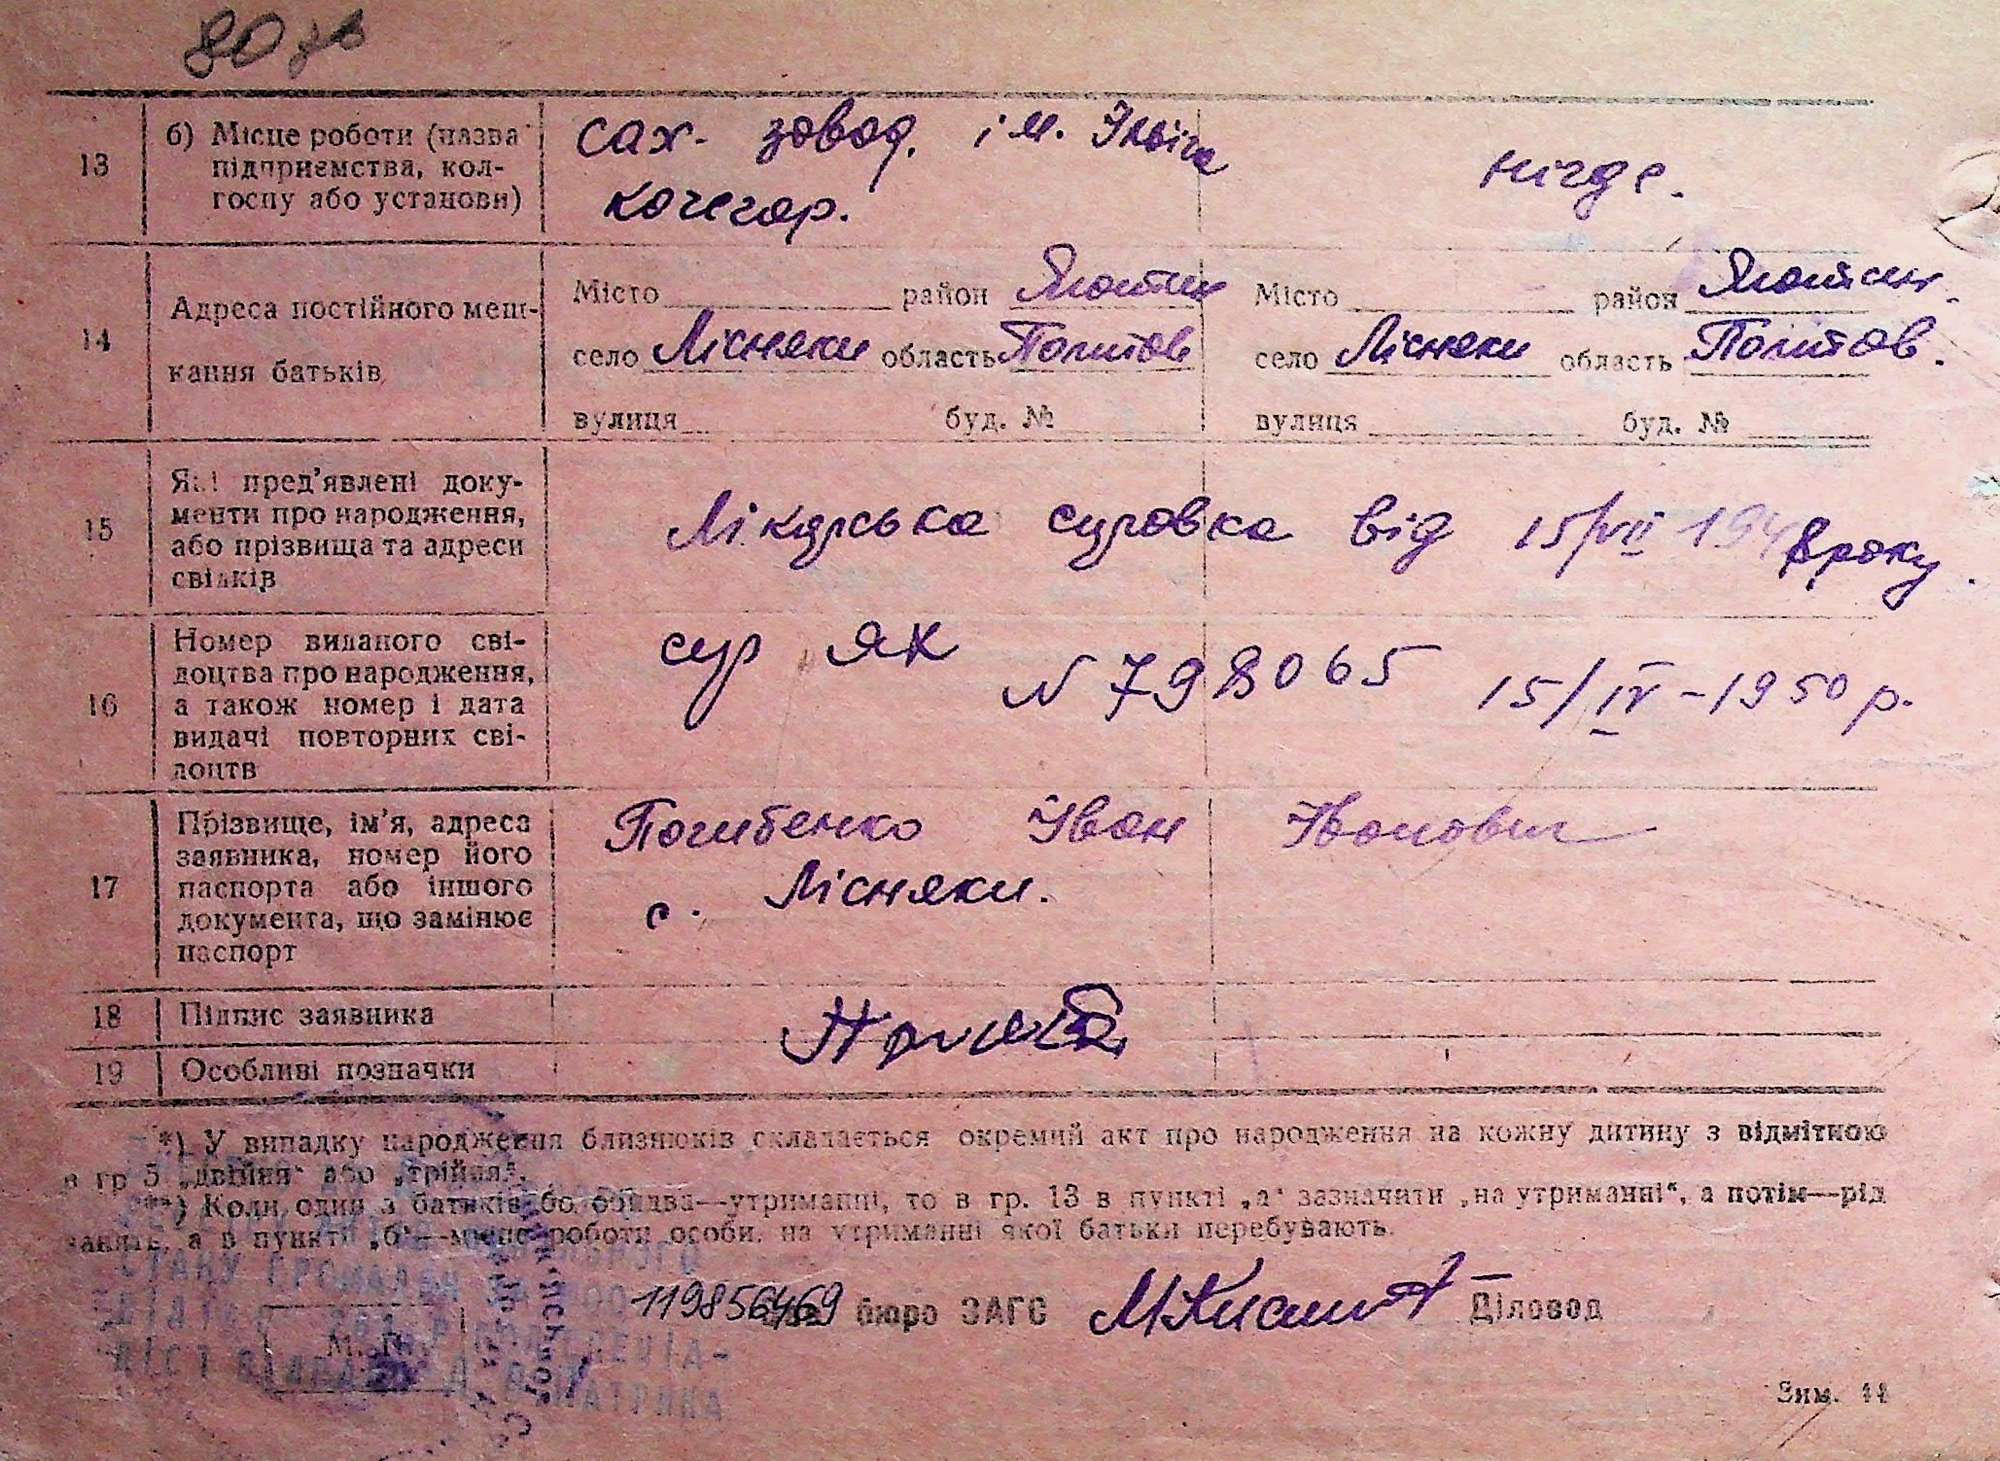 80 зв
13 б) Місце роботи (назва підприємства, колгоспу або установи)
сах. завод. ім. Ілліча
кочегар.
нігде.
14 Адреса постійного меш-
кання батьків
Місто район Яготин Місто район Яготин.
село Лісняки область Полтов село Лісняки область Полтов.
вулиця буд. № вулиця буд. №
15 Які пред'явлені доку-
менти про народження,
або прізвища та адреси
свідків
Лікарська справка від 15/VII 1948 року.
16 Номер виданого сві-
доцтва про народження,
а також номер і дата
видачі повторних сві-
доцтв
сер ЯК N 798065 15/IV-1950 р.
17 Прізвище, ім'я, адреса
заявника, номер його
паспорта або іншого
документа, що замінює
паспорт
Погибенко Іван Іванович
с. Лісняки.
18 Підпис заявника
19 Особливі позначки
*) У випадку народження близнюків складається окремий акт про народження на кожну дитину з відміткою
в гр 5 „двійня“ або „трійня“.
**) Коли один з батьків або обидва—утриманні, то в гр. 13 в пункті „а“ зазначити „на утриманні“, а потім—рід
занять, а в пункті „б“—місце роботи особи, на утриманні якої батьки перебувають.
119856469 бюро ЗАГС Діловод
М. П.
СТАНУ ГРОМАДЯН
Зим. 11